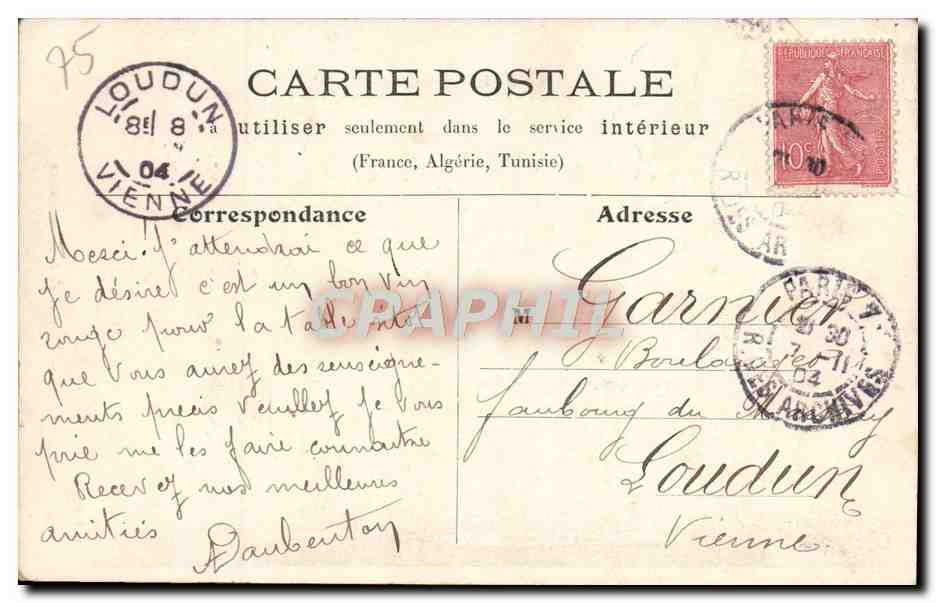 75
LOUDUN
8E 8
04
VIENNE
CARTE POSTALE
à utiliser seulement dans le service intérieur
(France, Algérie, Tunisie)
REPUBLIQUE FRANÇAISE
10c
POSTES
Correspondance
Adresse
Merci! J'attendrai ce que
je désire c'est un bon vin
rouge pour la table sitôt
que vous aurez des renseigne-
ments précis veuillez je vous
prie me les faire connaitre
Recevez nos meilleures
amitiés
Daubenton
M Garnier
Boulanger
faubourg du
Loudun
Vienne
PARIS
30
7 -11
04
R. DES ARCHIVES
CPARAMA